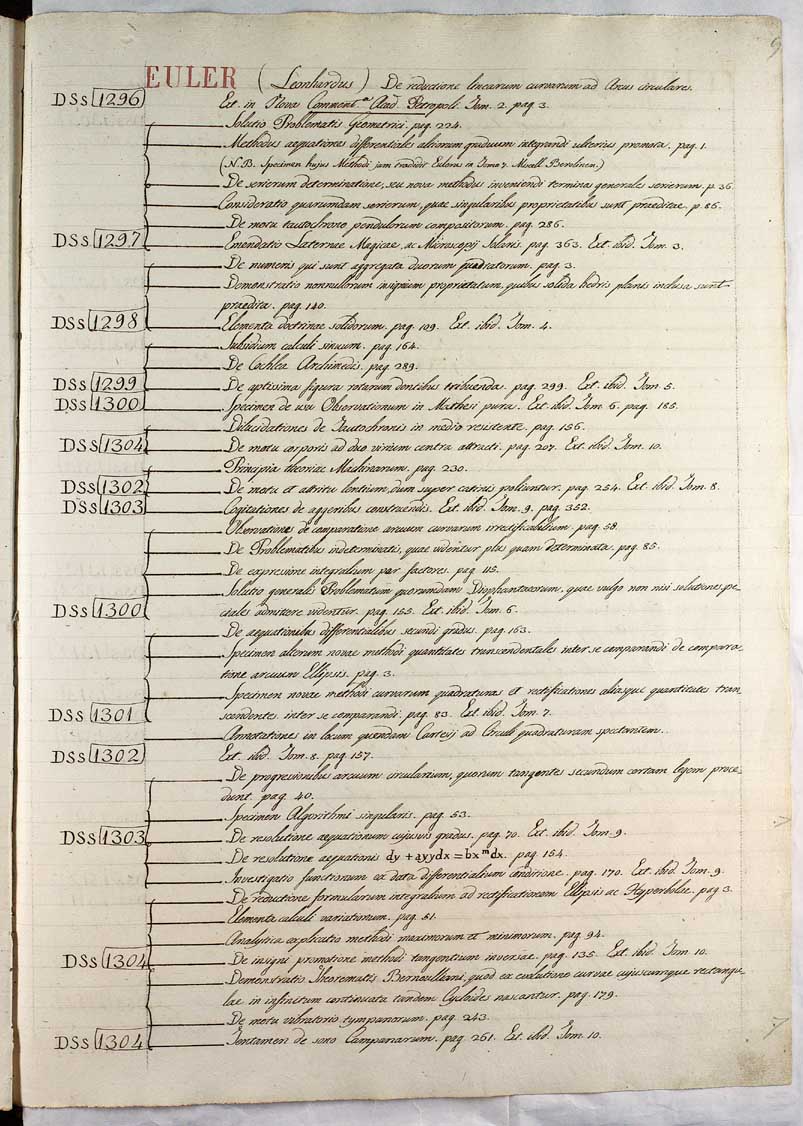 EULER (Leonhardus) De reductione linearum curvarum ad Arcus circulares.
DSs 1296 Ext. in Nova Comment. Acad. Petropoli. Tom. 2. pag. 3.
Solutio Problematis Geometrici. pag. 224.
Methodus aequationes differentiales altiorum graduum integrandi ulterius promota. pag. 1.
(N.B. Specimen hujus Methodi jam tradidit Eulerus in Tomo 7. Miscell. Berolinen.)
De serierum determinatione, seu nova methodus inveniendi terminos generales serierum. p. 36.
Consideratio quarumdam serierum, quae singularibus proprietatibus sunt praeditae. p. 86.
De motu tautochrono pendulorum compositorum. pag. 286.
DSs 1297 Emendatio Laternae Magicae, ac Microscopij Solaris. pag. 363. Ext. ibid. Tom. 3.
De numeris qui sunt aggregata duorum quadratorum. pag. 3.
Demonstratio nonnullorum insignium proprietatum, quibus solida hedris planis inclusa sunt
praedita. pag. 140.
DSs 1298 Elementa doctrinae solidorum. pag. 109. Ext. ibid. Tom. 4.
Subsidium calculi sinuum. pag. 164.
De Cochlea Archimedis. pag. 289.
DSs 1299 De aptissima figura rotarum dentibus tribuenda. pag. 299. Ext. ibid. Tom. 5.
DSs 1300 Specimen de usu Observationum in Mathesi pura. Ext. ibid. Tom. 6. pag. 185.
Dilucidationes de Tautochronis in medio resistente. pag. 156.
DSs 1304 De motu corporis ad duo virium centra attracti. pag. 207. Ext. ibid. Tom. 10.
Principia theoriae Machinarum. pag. 230.
DSs 1302 De motu et attritu lentium, dum super catinis poliuntur. pag. 254. Ext. ibid. Tom. 8.
DSs 1303 Cogitationes de aggeribus construendis. Ext. ibid. Tom. 9. pag. 352.
Observationes de comparatione arcuum curvarum irrectificabilium. pag. 58.
De Problematibus indeterminatis, quae videntur plus quam determinata. pag. 85.
De expressione integralium per factores. pag. 115.
Solutio generalis Problematum quorumdam Diophantaeorum, quae vulgo non nisi solutiones spe-
DSs 1300 ciales admittere videntur. pag. 155. Ext. ibid. Tom. 6.
De aequationibus differentialibus secundi gradus. pag. 163.
Specimen alterum novae methodi quantitates transcendentales inter se comparandi de compara-
tione arcuum Ellipsis. pag. 3.
Specimen novae methodi curvarum quadraturas et rectificationes aliasque quantitates tran-
DSs 1301 scendentes inter se comparandi. pag. 83. Ext. ibid. Tom. 7.
Annotationes in locum quendam Cartesij ad Circuli quadraturam spectantem.
DSs 1302 Ext. ibid. Tom. 8. pag. 157.
De progressionibus arcuum circularium, quorum tangentes secundum certam legem proce-
dunt. pag. 40.
Specimen Algorithmi singularis. pag. 53.
DSs 1303 De resolutione aequationum cujusvis gradus. pag. 70. Ext. ibid. Tom. 9.
De resolutione aequationis dy + ayydx = bxᵐdx. pag. 154.
Investigatio functionum ex data differentialium conditione. pag. 170. Ext. ibid. Tom. 9.
De reductione formularum integralium ad rectificationem Ellipsis ac Hyperbolae. pag. 3.
Elementa calculi variationum. pag. 51.
Analytica explicatio methodi maximorum et minimorum. pag. 94.
DSs 1304 De insigni promotione methodi tangentium inversae. pag. 135. Ext. ibid. Tom. 10.
Demonstratio Theorematis Bernoulliani, quod ex evolutione curvae cujuscumque rectangu-
lae in infinitum continuata tandem Cycloides nascantur. pag. 179.
De motu vibratorio tympanorum. pag. 243.
DSs 1304 Tentamen de sono Campanarum. pag. 261. Ext. ibid. Tom. 10.